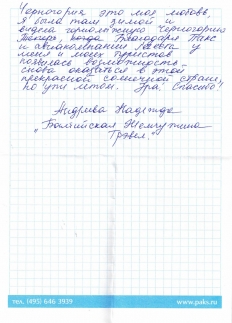 Черногория это моя любовь.
Я была там зимой и
видела горнолыжную Черногорию
Теперь когда благодаря Пакс
и авиакомпании
меня и моих туристов
появилась возможность
снова оказаться в этой
прекрасной солнечной стране,
но уже летом. Ура! Спасибо!
Надежда
"Балтийская Жемчужина
Трэвел"
тел. (495) 646 3939
www.paks.ru